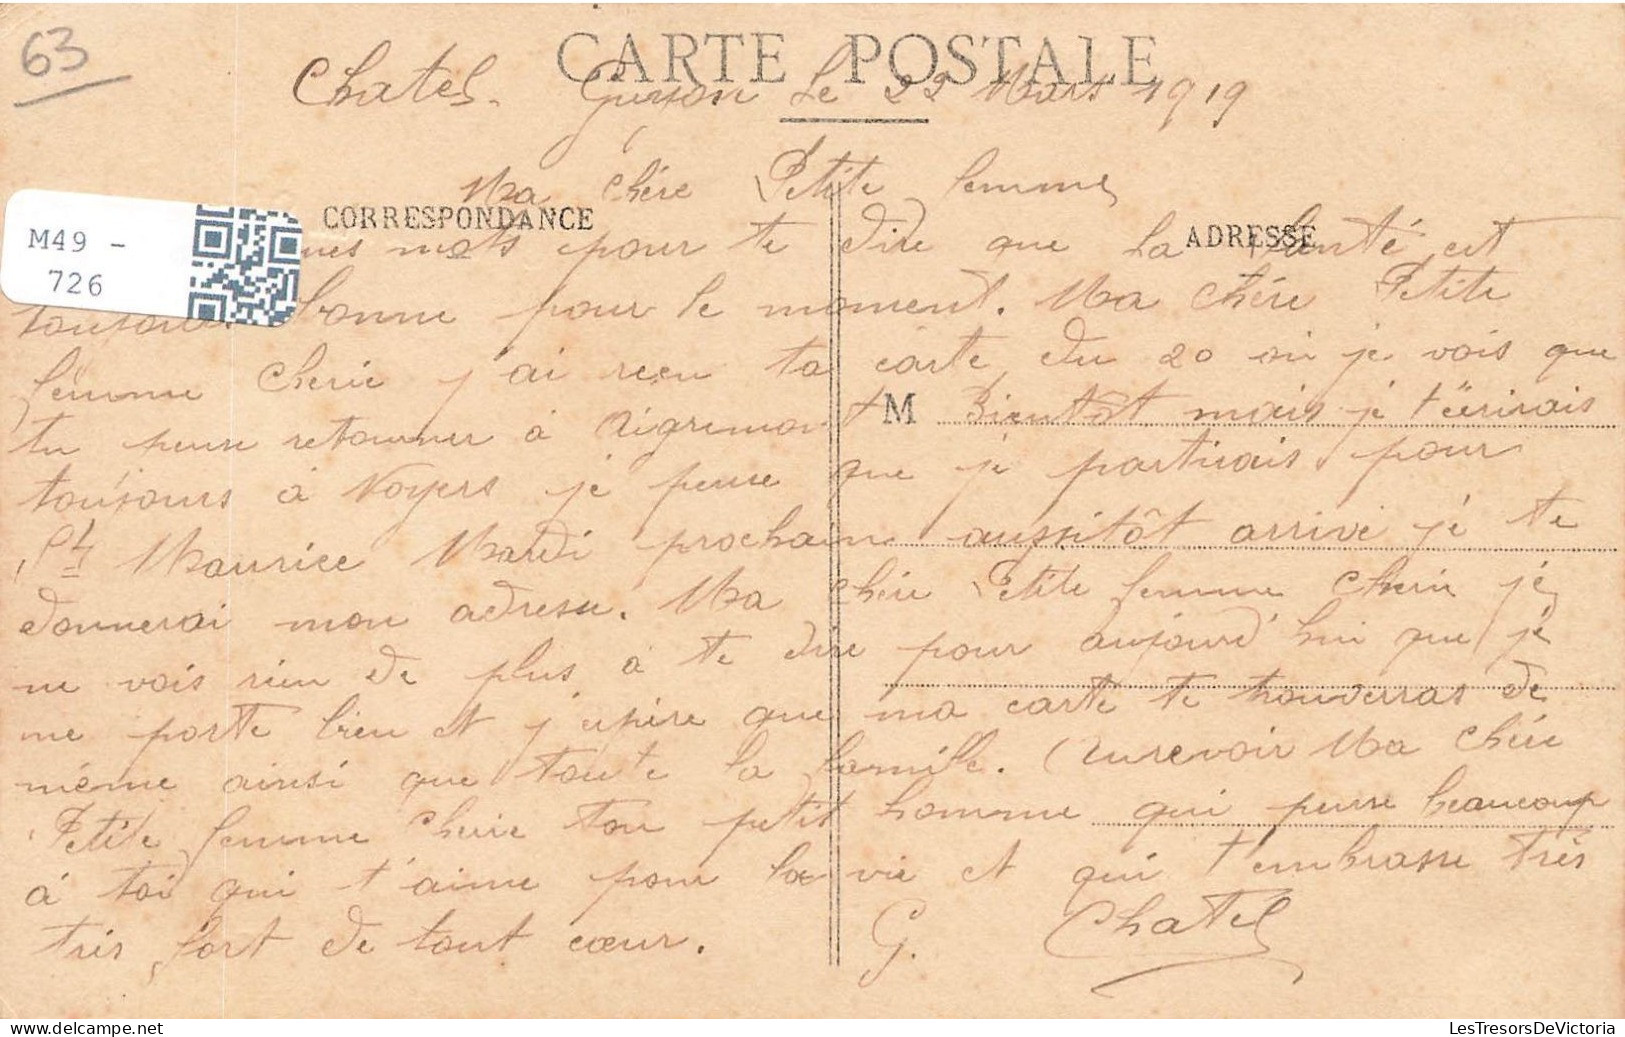 63
CARTE POSTALE
Chatel-Guyon le 22 Mars 1919
Ma chère Petite femme
CORRESPONDANCE
ADRESSE
M49 -
726
ques mots pour te dire que la santé est
toujours bonne pour le moment. Ma chère Petite
femme cherie j'ai reçu ta carte du 20 ou je vois que
tu pense retourner à Aigremont M Bientôt mais je t'écrirais
toujours à Noyers je pense que je partirais pour
St Maurice Mardi prochain aussitôt arrivé je te
donnerai mon adresse. Ma chère Petite femme cherie je
ne vois rien de plus à te dire pour aujourd'hui que je
me porte bien et j'espère que ma carte te trouverras de
même ainsi que toute la famille. Aurevoir Ma chère
Petite femme cherie ton petit homme qui pense beaucoup
à toi qui t'aime pour la vie et qui t'embrasse très
très fort de tout cœur. G. Chatel
LesTresorsDeVictoria
www.delcampe.net